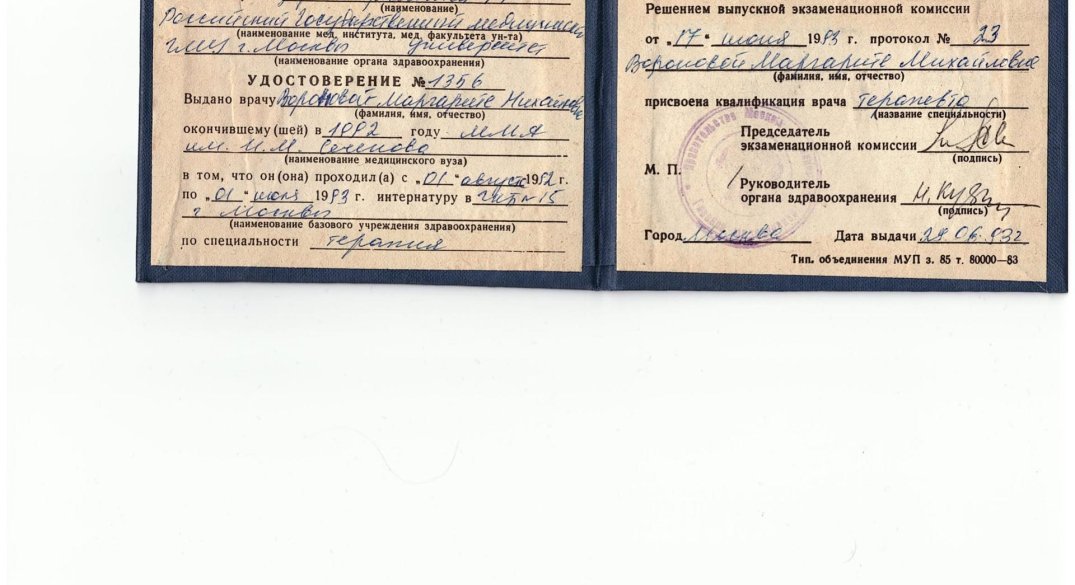 (наименование)
Российский Государственный медицинский
(наименование мед. института, мед. факультета ун-та)
г. Москвы университет
(наименование органа здравоохранения)
УДОСТОВЕРЕНИЕ № 1356
Выдано врачу Вороновой Маргарите Михайловне
(фамилия, имя, отчество)
окончившему (шей) в 1992 году ММА
им. И.М. Сеченова
(наименование медицинского вуза)
в том, что он (она) проходил(а) с „01" август 1992 г.
по „01" июля 1993 г. интернатуру в ГКБ №15
г Москвы
(наименование базового учреждения здравоохранения)
по специальности терапия
Решением выпускной экзаменационной комиссии
от „17" июня 1993 г. протокол № 23
Вороновой Маргарите Михайловне
(фамилия, имя, отчество)
присвоена квалификация врача терапевта
(название специальности)
Председатель
экзаменационной комиссии
(подпись)
М. П.
Руководитель
органа здравоохранения
(подпись)
Город Москва Дата выдачи 29.06.93г
Тип. объединения МУП з. 85 т. 80000—83